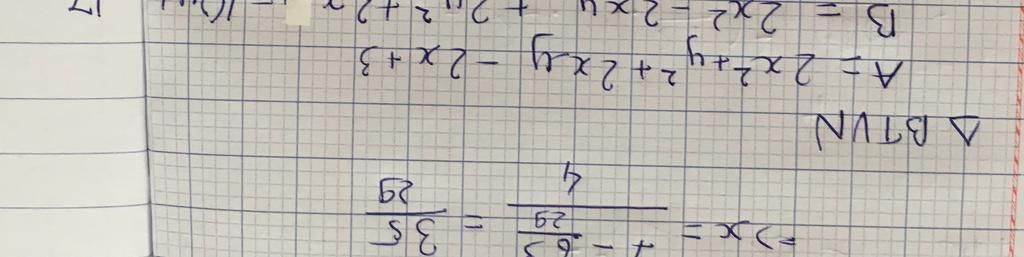 => x = (7 - 63/29)/4 = 35/29
Δ BTVN
A = 2x² + y² + 2xy - 2x + 3
B = 2x² - 2xy + 2y² + 2x - 10y + 17